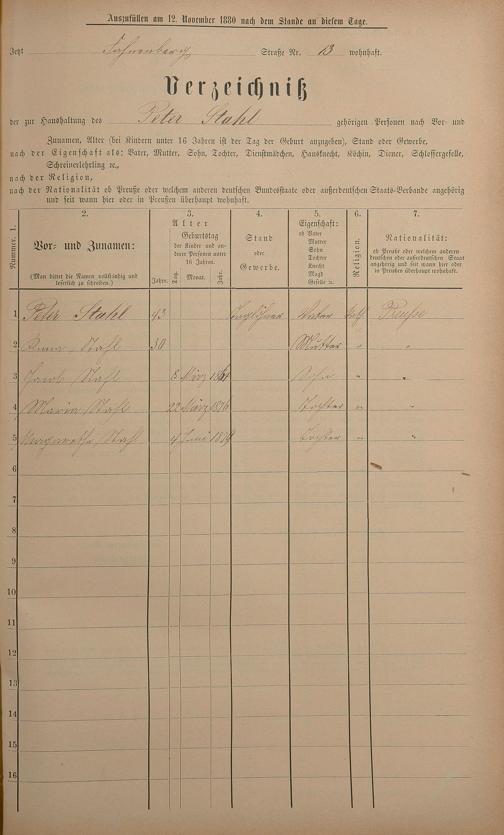 Auszufüllen am 12. November 1880 nach dem Stande an diesem Tage.
Jetzt Straße Nr. 13 wohnhaft.
Verzeichniß
der zur Haushaltung des Peter Stahl gehörigen Personen nach Vor- und
Zunamen, Alter (bei Kindern unter 16 Jahren ist der Tag der Geburt anzugeben), Stand oder Gewerbe,
nach der Eigenschaft als: Vater, Mutter, Sohn, Tochter, Dienstmädchen, Hausknecht, Köchin, Diener, Schlossergeselle,
Schreiverlehrling ec.,
nach der Religion,
nach der Nationalität ob Preuße oder welchem anderen deutschen Bundesstaate oder außerdeutschen Staats-Verbande angehörig
und seit wann hier oder in Preußen überhaupt wohnhaft.
Nummer. 1.
2.
Vor- und Zunamen:
(Man bittet die Namen vollständig und
leserlich zu schreiben.)
3.
Alter
Jahre.
Geburtstag
der Kinder und an-
derer Personen unter
16 Jahren.
Tag. Monat. Jahr.
4.
Stand
oder
Gewerbe.
5.
Eigenschaft:
ob Vater
Mutter
Sohn
Tochter
Knecht
Magd
Geselle u.
6.
Religion.
7.
Nationalität:
ob Preuße oder welchem anderen
deutschen oder außerdeutschen Staat
angehörig und seit wann hier oder
in Preußen überhaupt wohnhaft.
1 Peter Stahl 43 Taglöhner Vater kath Preuße
2 Stahl 30 Mutter " "
3 Jacob Stahl 8 März Sohn " "
4 Maria Stahl 22 März 1876 Tochter " "
5 Margaretha Stahl 4 Juni 1879 Tochter " "
6
7
8
9
10
11
12
13
14
15
16